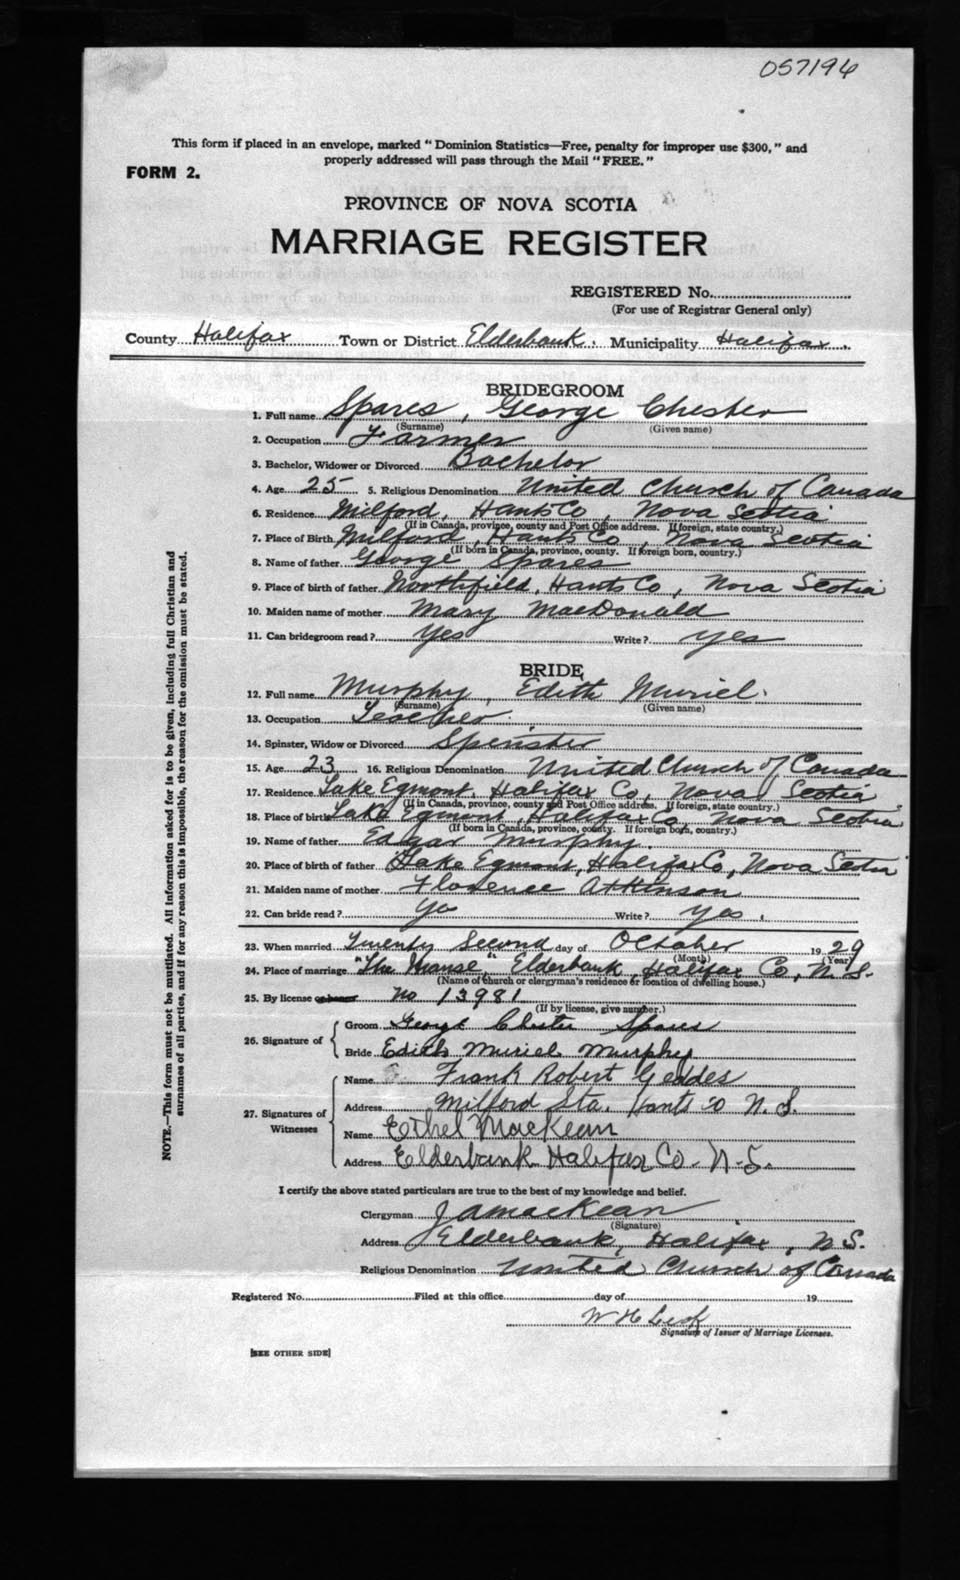 057196
This form if placed in an envelope, marked "Dominion Statistics—Free, penalty for improper use $300," and
properly addressed will pass through the Mail "FREE."
FORM 2.
PROVINCE OF NOVA SCOTIA
MARRIAGE REGISTER
REGISTERED No.
(For use of Registrar General only)
County Halifax Town or District Elderbank. Municipality Halifax.
BRIDEGROOM
1. Full name Spares, George Chester
(Surname) (Given name)
2. Occupation Farmer
3. Bachelor, Widower or Divorced Bachelor
4. Age 25 5. Religious Denomination United Church of Canada
6. Residence Milford, Hants Co, Nova Scotia
(If in Canada, province, county and Post Office address. If foreign, state country.)
7. Place of Birth Milford, Hants Co, Nova Scotia
(If born in Canada, province, county. If foreign born, country.)
8. Name of father George Spares
9. Place of birth of father Northfield, Hants Co, Nova Scotia
10. Maiden name of mother Mary MacDonald
11. Can bridegroom read? Yes Write? yes
BRIDE
12. Full name Murphy, Edith Muriel.
(Surname) (Given name)
13. Occupation Teacher.
14. Spinster, Widow or Divorced Spinster
15. Age 23 16. Religious Denomination United Church of Canada
17. Residence Lake Egmont, Halifax Co, Nova Scotia
(If in Canada, province, county and Post Office address. If foreign, state country.)
18. Place of birth Lake Egmont, Halifax Co, Nova Scotia
(If born in Canada, province, county. If foreign born, country.)
19. Name of father Edgar Murphy.
20. Place of birth of father Lake Egmont, Halifax Co, Nova Scotia
21. Maiden name of mother Florence Atkinson
22. Can bride read? Yes Write? yes.
23. When married Twenty Second day of October 1929
(Month) (Year)
24. Place of marriage "The Manse", Elderbank, Halifax Co, N.S.
(Name of church or clergyman's residence or location of dwelling house.)
25. By license or banns No 13981
(If by license, give number.)
26. Signature of
Groom George Chester Spares
Bride Edith Muriel Murphy
27. Signatures of Witnesses
Name Frank Robert Geddes
Address Milford Sta. Hants Co N.S.
Name Ethel MacKean
Address Elderbank Halifax Co. N.S.
I certify the above stated particulars are true to the best of my knowledge and belief.
Clergyman J A MacKean
(Signature)
Address Elderbank, Halifax, N.S.
Religious Denomination United Church of Canada
Registered No. Filed at this office day of 19
W H
Signature of Issuer of Marriage Licenses.
[SEE OTHER SIDE]
NOTE.—This form must not be mutilated. All information asked for is to be given, including full Christian and
surnames of all parties, and if for any reason this is impossible, the reason for the omission must be stated.